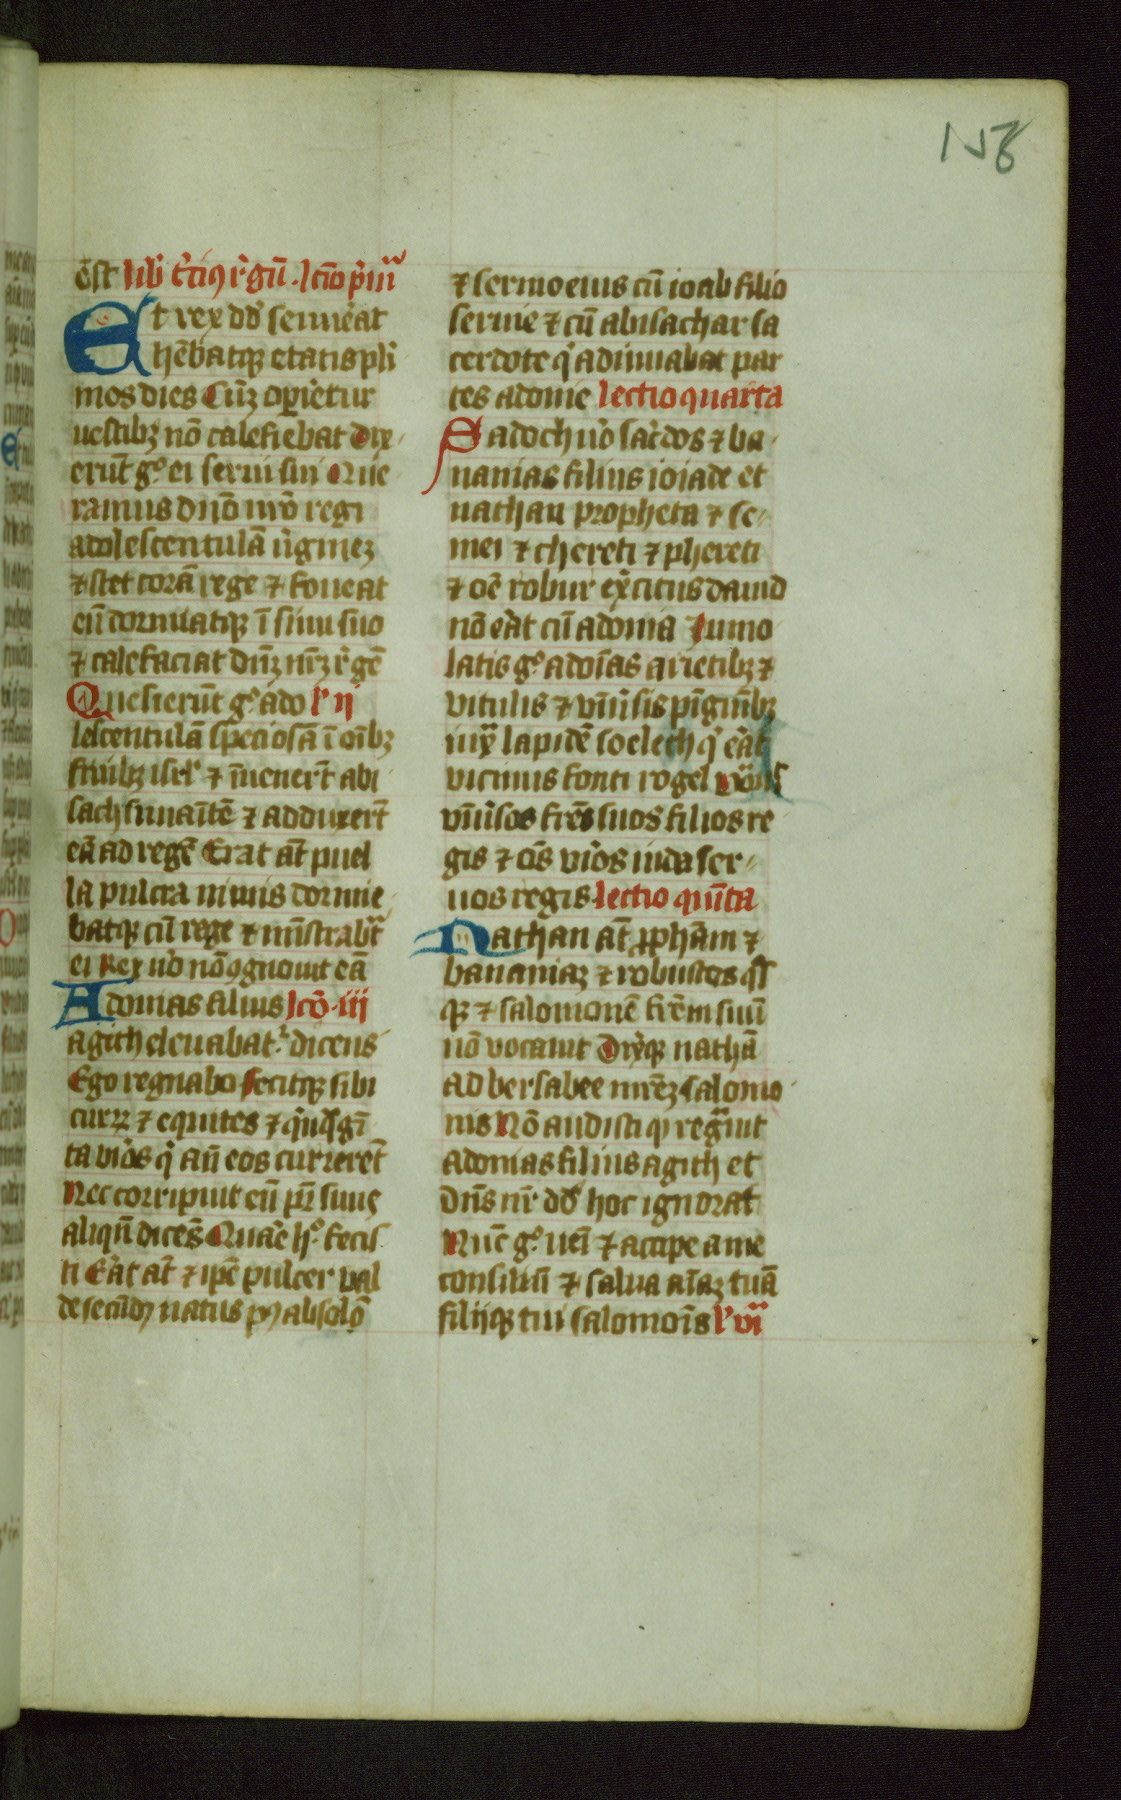 158
est lib̄ t̄ciꝰ r̄gū. lc̄io p̄mᵃ
Et rex dd̄ senu̾at
hēbatqꝫ etatis pl̾i
mos dies Cūqꝫ oꝑiētur
uestibꝫ nō calefiebat Dix
erūt gͦ ei serui sui Que
ramus dn̄o nr̄o regi
adolescentulā v̾ginē
⁊ stet corā rege ⁊ foueat
eū dormiatqꝫ ī sinu suo
⁊ calefaciat dn̄ꝫ nr̄ꝫ r̄gē
Quesierūt gͦ ado l' ij
lescentulā speciosā ī oībꝫ
finibꝫ isrl̾ ⁊ īuenert̄ abi
sach sunaītē ⁊ adduxert̄
eā ad regē Erat āt puel
la pulcra nimis dormie
batqꝫ cū rege ⁊ mīstrabᵃt
ei Rex uͦ nō ꝯgnouit eā
Adonias filius lcō. iii
agith eleuabat᷑ dicens
Ego regnabo fecitqꝫ sibi
currꝫ ⁊ equites ⁊ q̾nq̄gī
ta vi̾os q̾ aū eos currerēt
Nec corripuit eū pr̄ suus
aliqn̄ dicēs Quare hͦ fecis
ti Erat āt ⁊ ipē pulcer val
de secūdꝰ natus pꝰ absolō
⁊ sermo eius cū ioab filio
seruie ⁊ cū abisachar sa
cerdote q̾ adiuuabat par
tes adonie lectio quarta
Sadoch uͦ sac̾dos ⁊ ba
nanias filius ioiade et
nathan propheta ⁊ se
mei ⁊ chereti ⁊ phereti
⁊ oē robur ex̾citus dauid
nō erat cū adonia Immo
latis gͦ adoīas arietibꝫ ⁊
vitulis ⁊ vniu̾sis pīguībꝫ
iuxᵃ lapidē soelech q̾ erat
vicinus fonti rogel
vniu̾sos frēs suos filios re
gis ⁊ oēs vi̾os iuda ser
uos regis lectio quīta
Nathan āt ꝓphām ⁊
bananiaꝫ ⁊ robustos
qꝫ ⁊ salomonē frēm suū
nō vocauit Dixitqꝫ nathā
ad bersabee mr̄eꝫ salomo
nis Nō audisti ꝙ regᵃuit
adonias filius agith et
dn̄s nr̄ dd̄ hoc ignorat
Nūc gͦ uēi ⁊ accipe a me
consiliū ⁊ salua aīaꝫ tuā
filijqꝫ tui salomoīs l' viᵃ